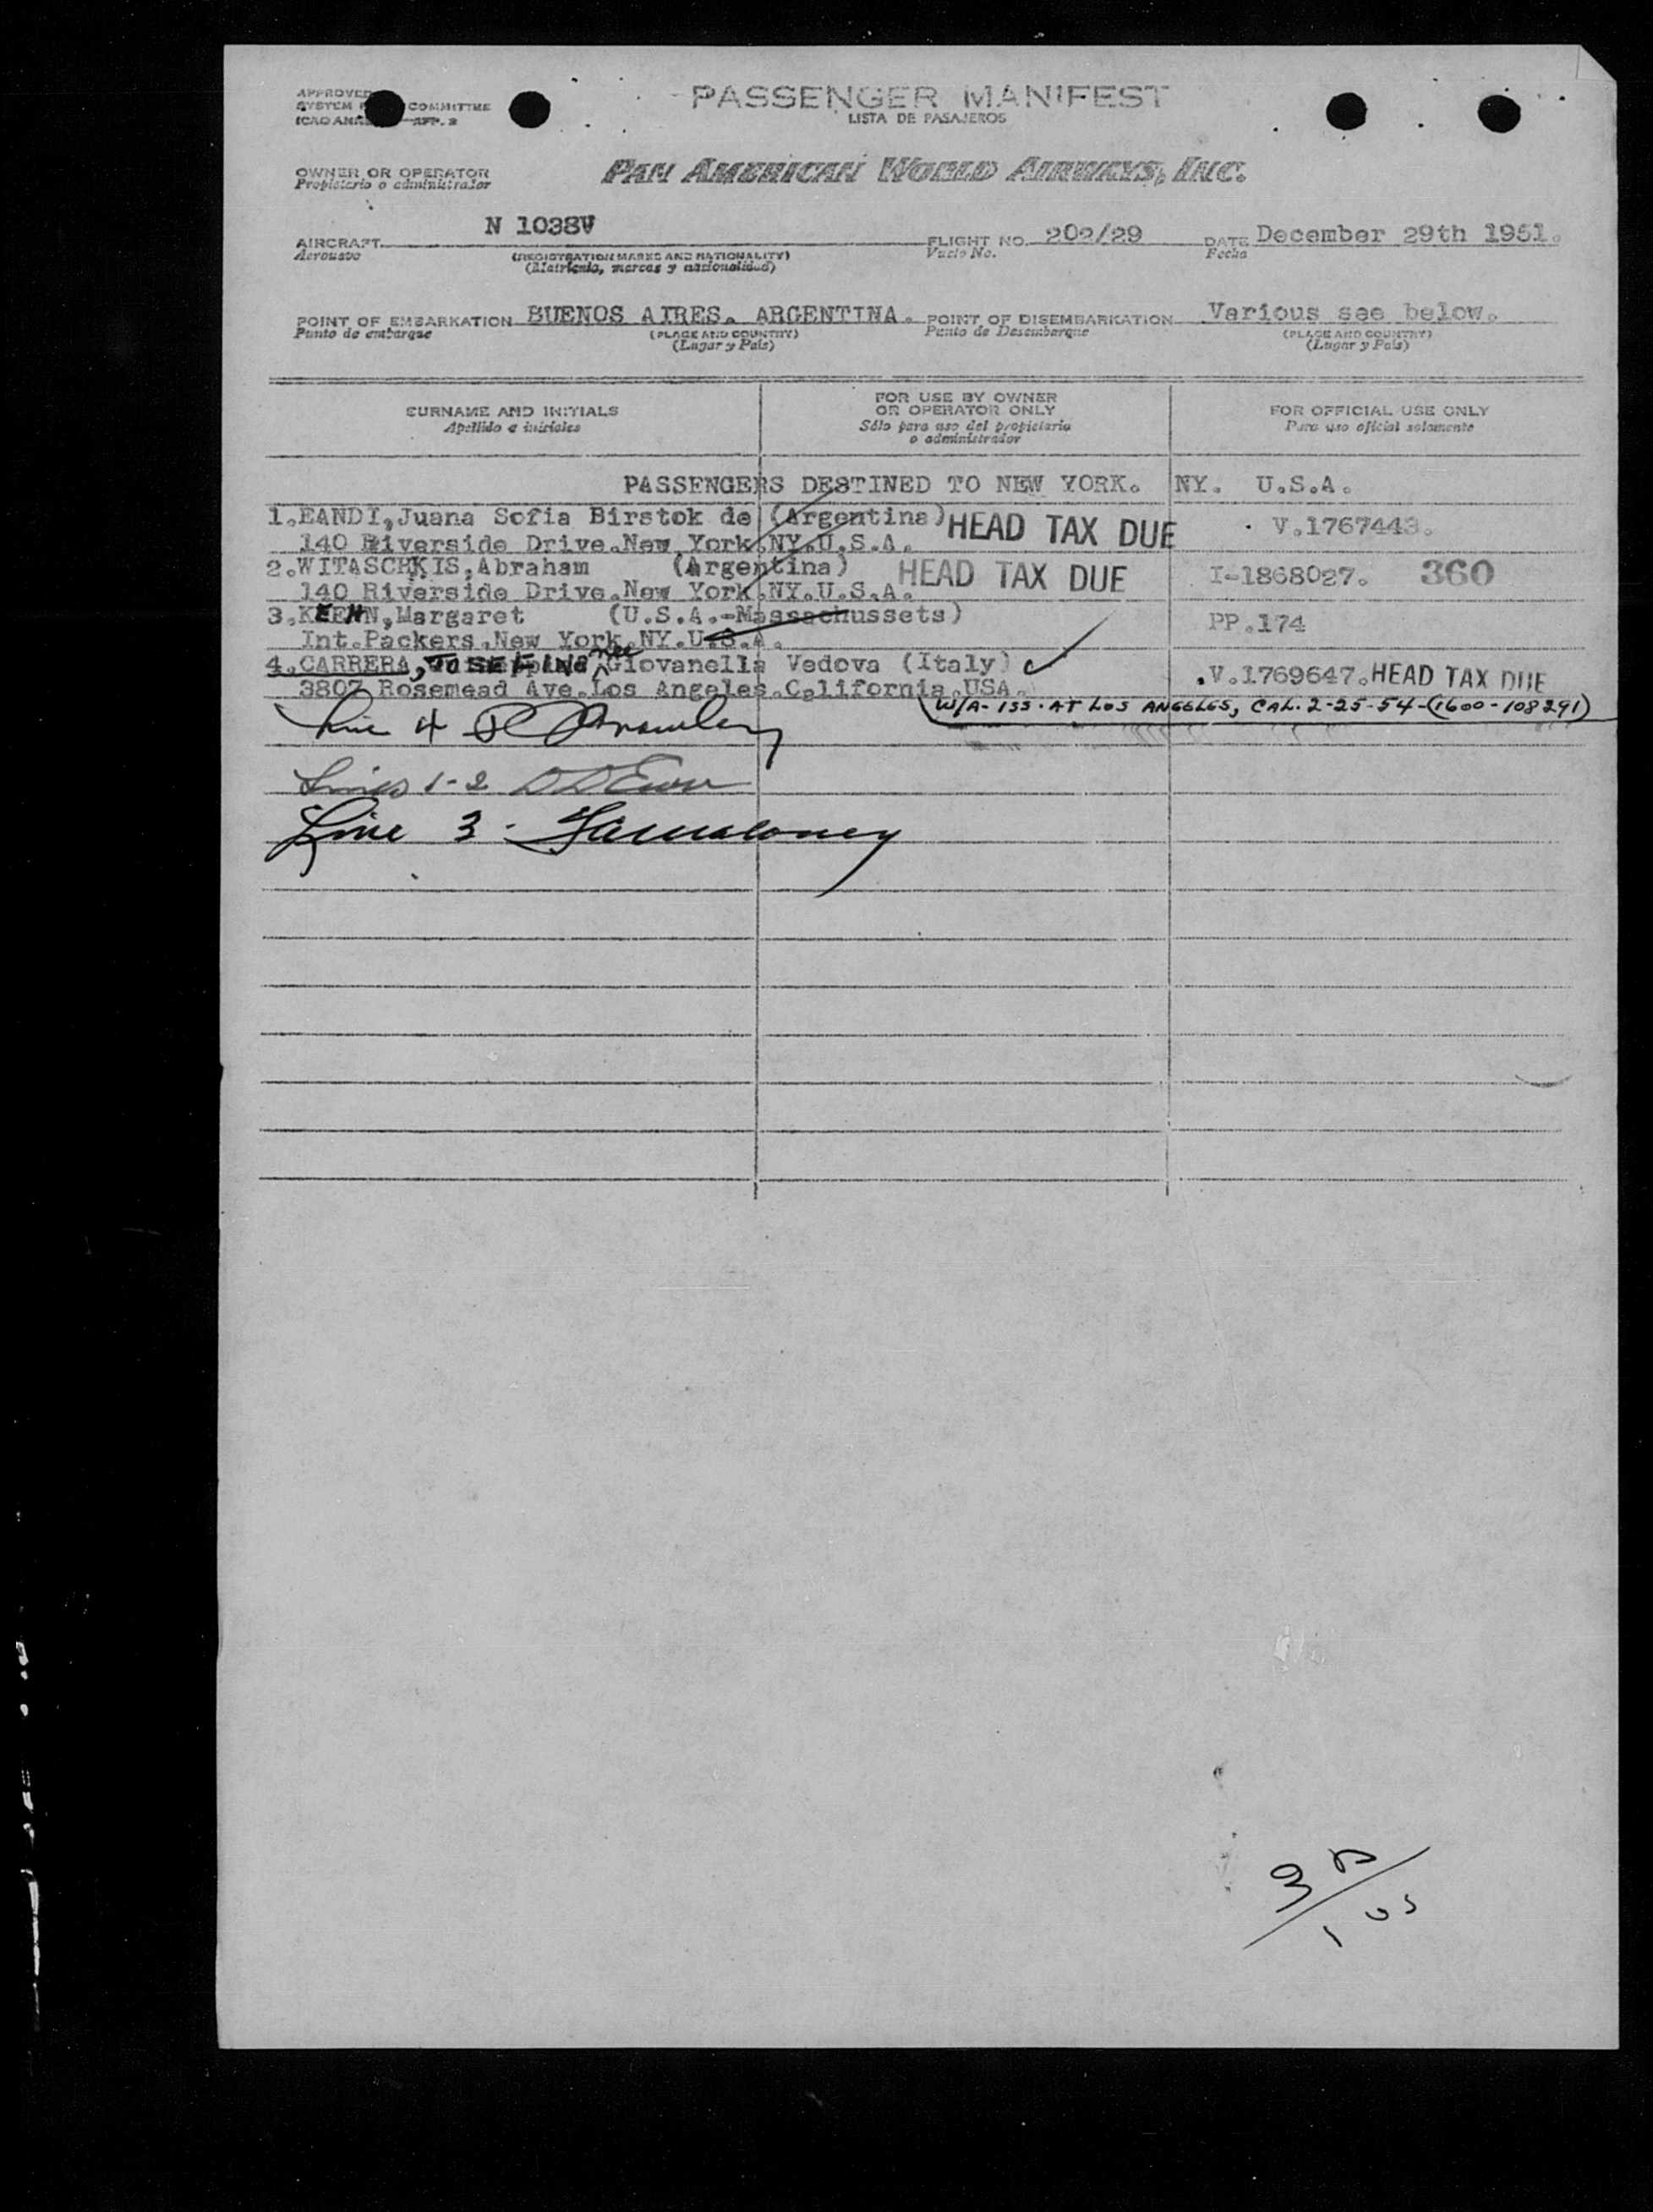 PASSENGER MANIFEST
LISTA DE PASAJEROS
APPROVED
SYSTEM COMMITTEE
ICAO
OWNER OR OPERATOR
Propietario o administrador
PAN AMERICAN WORLD AIRWAYS, INC.
AIRCRAFT N 1038V FLIGHT NO. 202/29 DATE December 29th 1951.
(REGISTRATION MARKS AND NATIONALITY) Fecha
(Matrícula, marcas y nacionalidad)
POINT OF EMBARKATION BUENOS AIRES. ARGENTINA. POINT OF DISEMBARKATION Various see below.
Punto de embarque (PLACE AND COUNTRY) Punto de Desembarque (PLACE AND COUNTRY)
(Lugar y País) (Lugar y País)
SURNAME AND INITIALS
Apellido e iniciales
FOR USE BY OWNER
OR OPERATOR ONLY
Sólo para uso del propietario
o administrador
FOR OFFICIAL USE ONLY
Para uso oficial solamente
PASSENGERS DESTINED TO NEW YORK. NY. U.S.A.
1.EANDI,Juana Sofia Birstok de (Argentina) HEAD TAX DUE V.1767443.
140 Riverside Drive.New York.NY.U.S.A.
2.WITASCHKIS,Abraham (Argentina) HEAD TAX DUE I-1868027. 360
140 Riverside Drive.New York.NY.U.S.A.
3.KEEHN,Margaret (U.S.A.-Massachussets) PP.174
Int.Packers.New York.NY.U.S.A.
4.CARRERA, JOSEFINA nee Giovanella Vedova (Italy) ✓ .V.1769647. HEAD TAX DUE
3807 Rosemead Ave.Los Angeles.California.USA.
W/A- ISS. AT LOS ANGELES, CAL. 2-25-54-(1600-108291)
Line 4
Lines 1-2
Line 3.